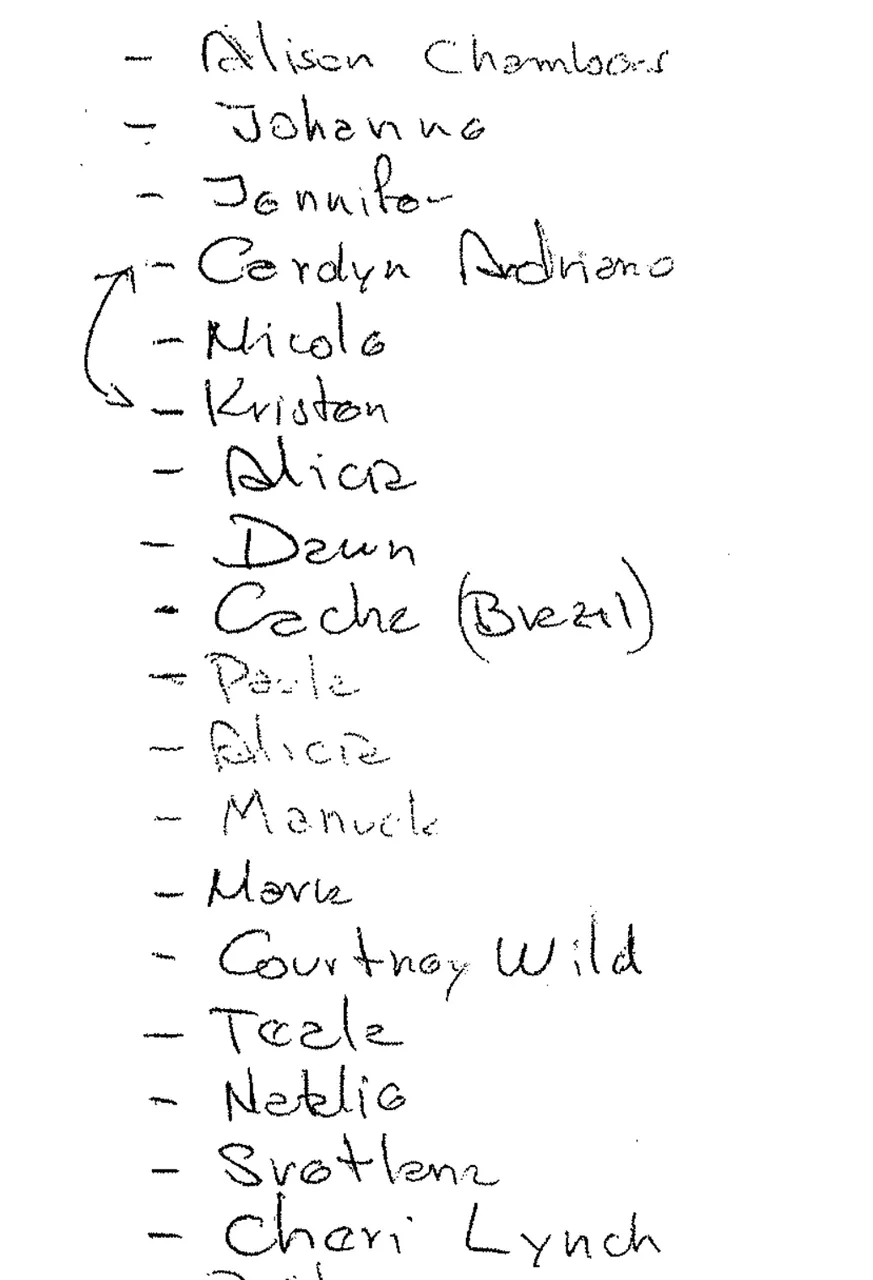 - Alison Chambers
- Johanna
- Jennifer
- Carolyn Andriano
- Nicole
- Kristen
- Alicia
- Dawn
- Cacha (Brazil)
- Paula
- Alicia
- Manuela
- Mark
- Courtney Wild
- Teala
- Natalie
- Svetlana
- Cheri Lynch